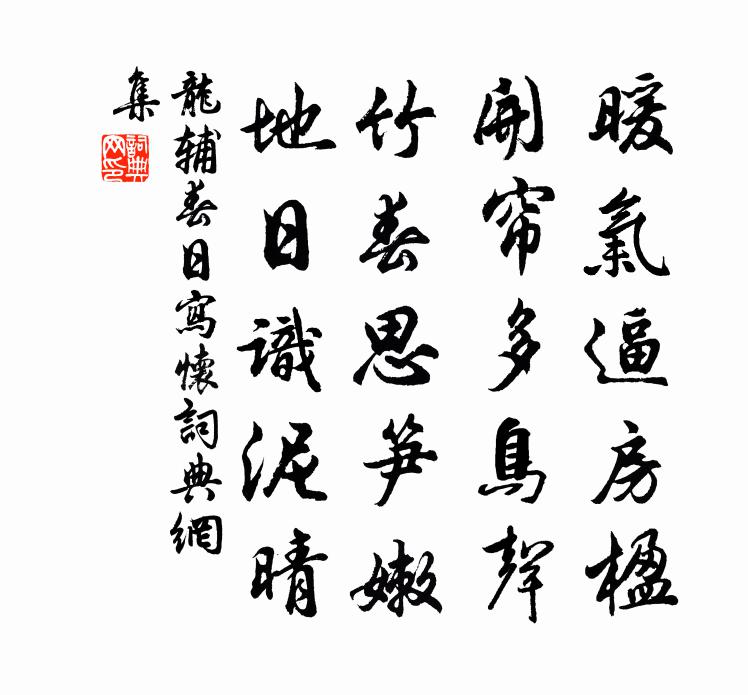 暖氣逼房楹
開帘多鳥聲
竹春思笋嫩
地日識泥晴
龍輔春日寫懷詞典網
集
詞典
网印